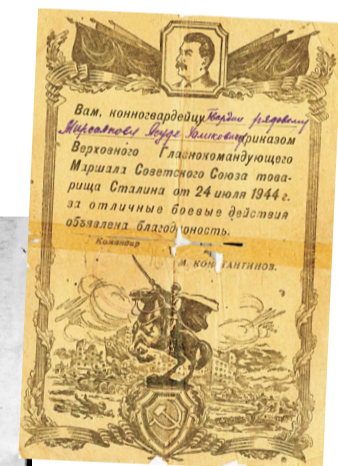 Вам, конногвардейцу Гвардии рядовому
приказом
Верховного Главнокомандующего
Маршала Советского Союза това-
рища Сталина от 24 июля 1944 г.
за отличные боевые действия
объявлена благодарность.
Командир
М. КОНСТАНТИНОВ.